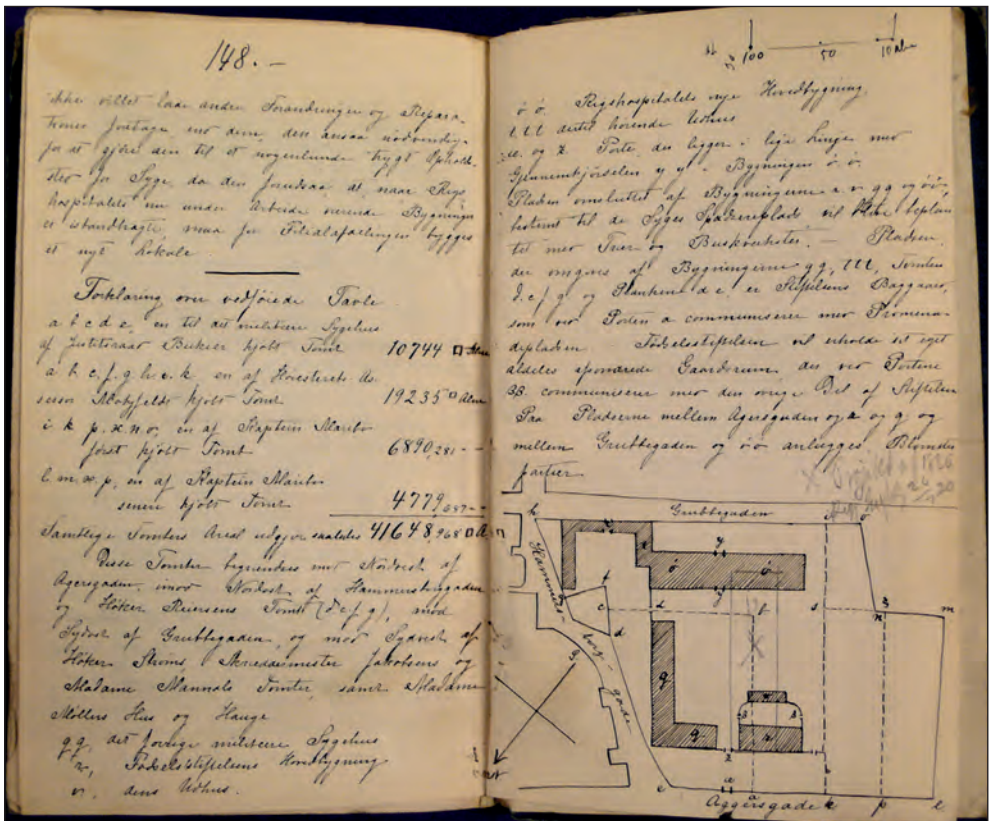 148. —
ikke villet lade andre Forandringer og Repara-
tioner foretage, end dem, den ansaa nødvendige
for at gjøre den til et nogenlunde trygt Opholds-
sted for Syge, da den forudsaa at, naar Rigs-
hospitalets nu under Arbeide værende Bygninger
er istandbragte, maa for Filialafdelingen bygges
et nyt Lokale.
Forklaring over vedføiede Tavle.
a b c d e, en til det militære Sygehus
af Justitsraad Bukier kjøbt Tomt 10744 □ Alen
a b c. f. g h i. k en af Høiesterets As-
sessor Motzfeldt kjøbt Tomt 19235 □ Alen
i k p. x n o, en af Kaptein Maribo
først kjøbt Tomt 6890,281 - -
l. m. x. p, en af Kaptein Maribo
senere kjøbt Tomt 4779,687 - -
Samtlige Tomters Areal udgjør saaledes 41648,968 □ A
Disse Tomter begrændses mod Nordvest af
Agersgaden, imod Nordost af Hammersborggaden
og Høker Reiersens Tomt (d c f g), mod
Sydost af Grubbegaden, og mod Sydvest af
Høker Strøms, Skræddermester Jakobsens og
Madame Mannals Tomter, samt Madame
Møllers Hus og Hauge
q q, det forrige militære Sygehus
r, Fødselsstiftelsens Hovedbygning
v. dens Udhus.
100 50 10 Alen
ö ö. Rigshospitalets nye Hovedbygning.
t t t dertil hørende Udhus
æ. og z Porte, der ligger i lige Linge med
Gjennemkjørselen y y i Bygningen ö ö.
Pladsen omsluttet af Bygningerne r. v. q q og ö ö,
bestemt til de Syges Spadsereplads vil blive beplan-
tet med Træer og Buskvækster. — Pladsen,
der omgives af Bygningerne q q, t t t, Tomten
d. c f g og Planken d e, er Stiftelsens Baggaard,
som ved Porten a communiserer med Promena-
depladsen. Fødselsstiftelsen vil erholde sit eget
aldeles separerede Gaardsrum, der ved Portene
ββ. communiserer med den øvrige Del af Stiftelsen
Paa Pladserne mellem Agersgaden og r og q og
mellem Grubbegaden og ö ö anlægges Blomster-
partier
Grubbegaden
Hammersborg-
gade
Aggersgade
h
i
o
y
ö
ö
y
f
c
d
b
s
n
m
g
q
q
β
β
z
æ
e
a
k
p
l